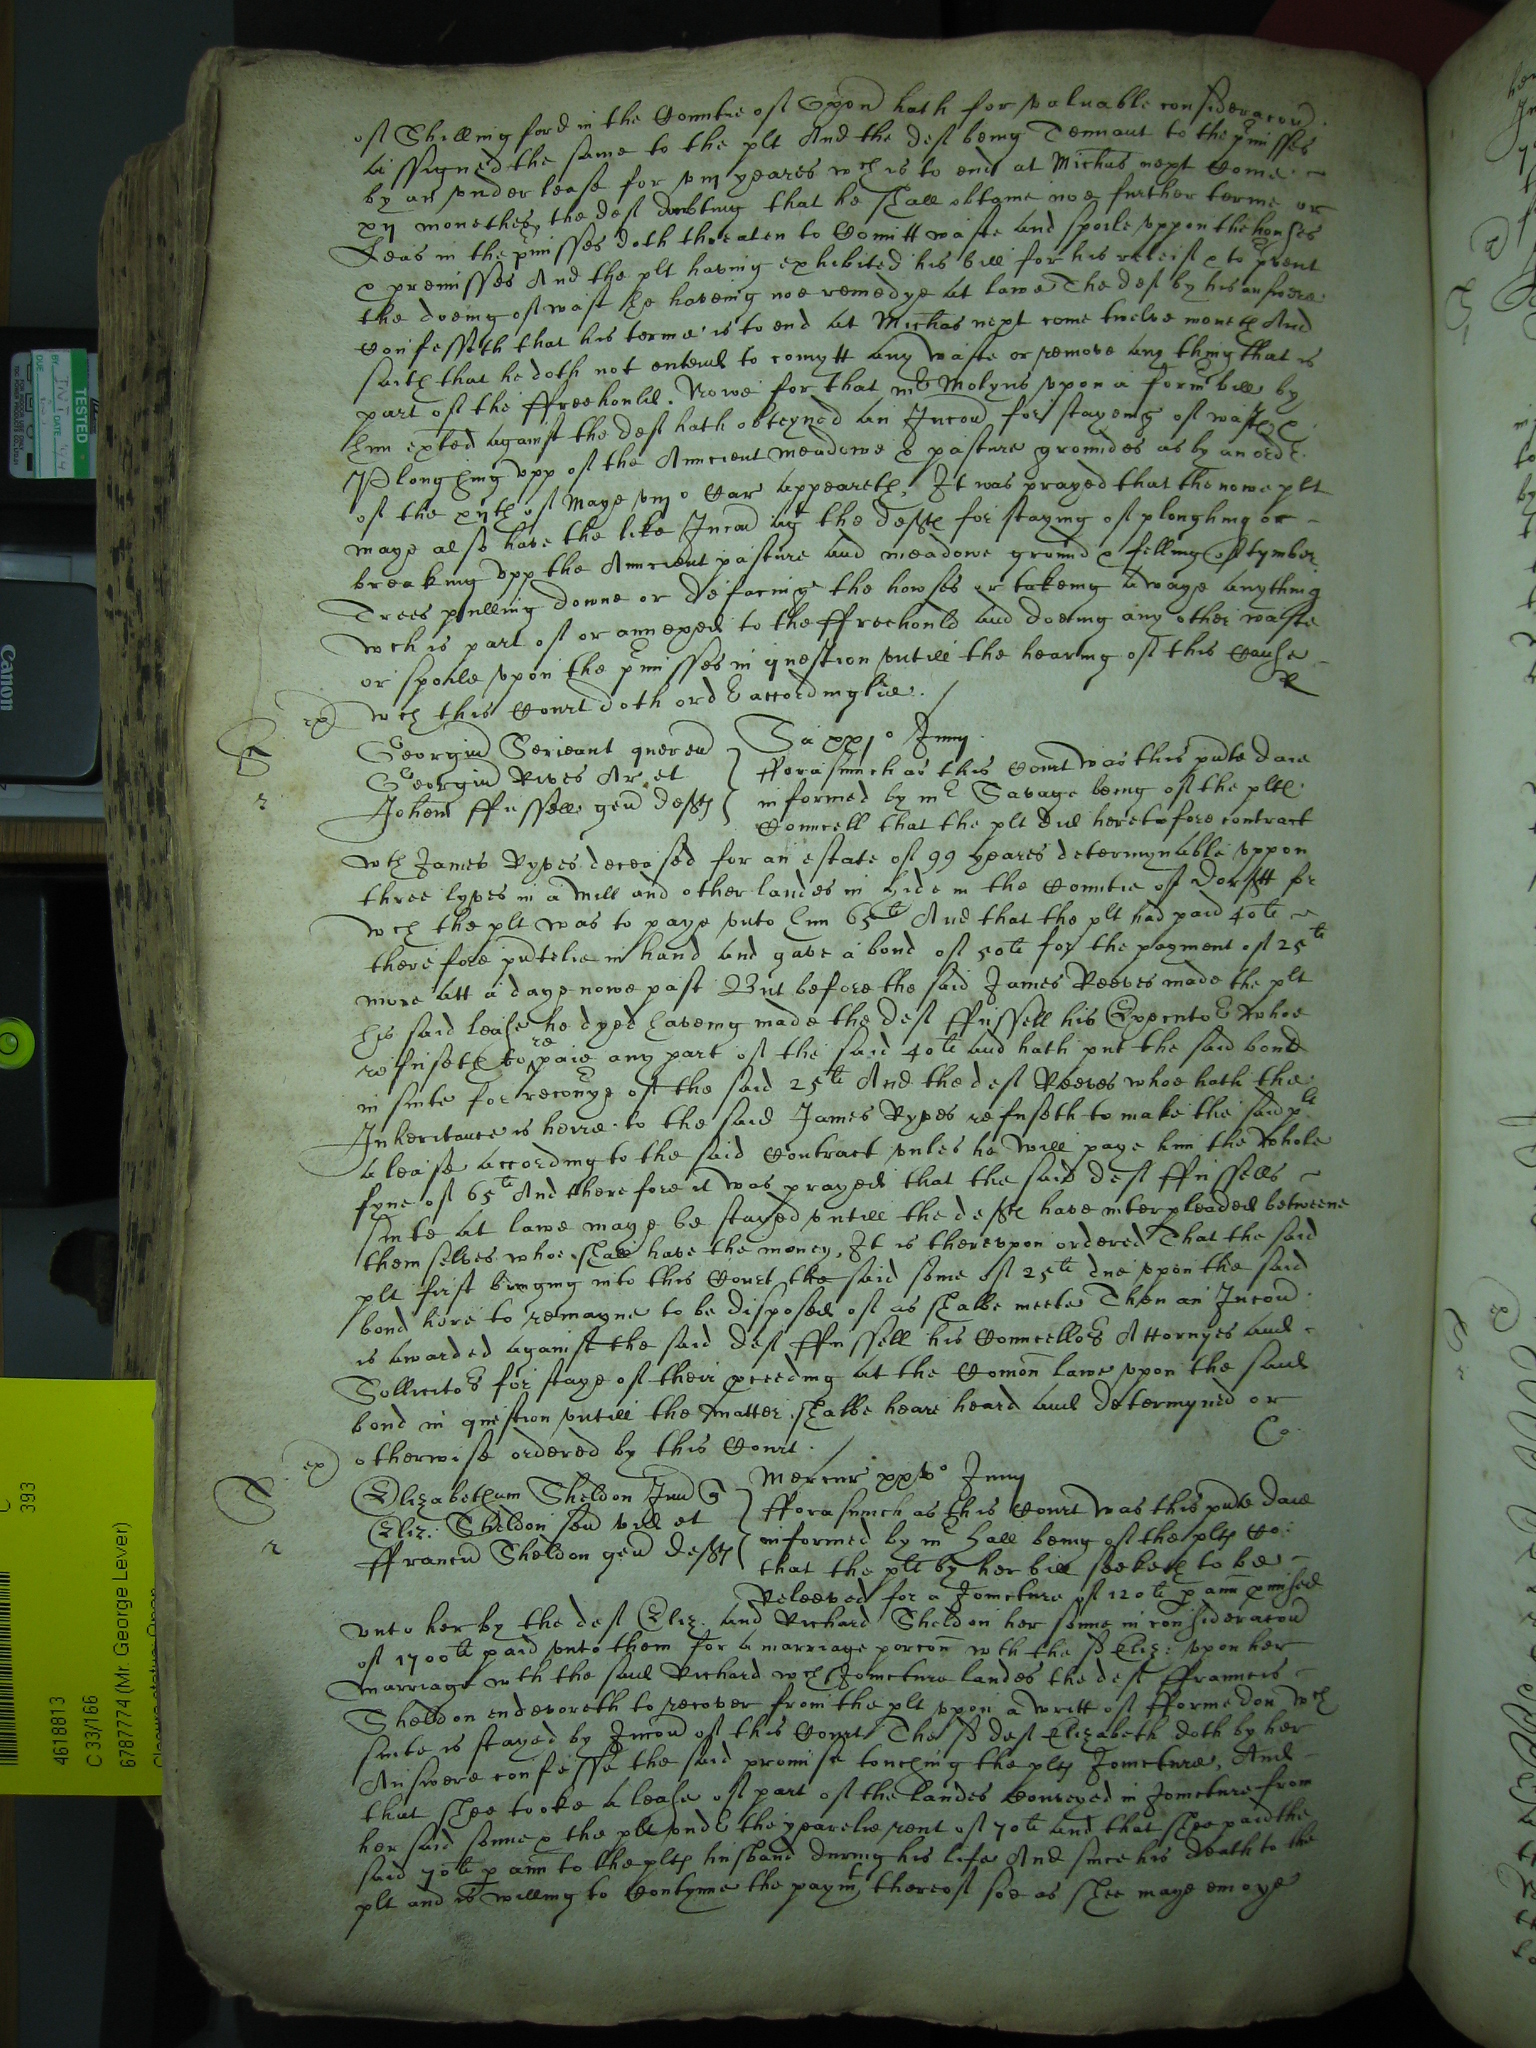 of Shillingford in the Countie of Oxon hath for valuable consideracon
assigned the same to the plt And the deft being Tennant to the pmisses
by an vnder lease for viij yeares wch is to end at Michas next come
xij monethes, the deft doubting that he shall obtaine noe further terme or
Leas in the pmisses doth threaten to Comitt waste and spoile vppon the houses
& premisses And the plt having exhibited his bill for his releif & to pvent
the doeing of wast he haveing noe remedye at lawe The deft by his answere
Confesseth that his terme is to end at Michas next come twelve moneth And
saith that he doth not entend to comytt any waste or remove any thing that is
part of the ffreehould. Nowe for that mr Molyns vpon a form bill by
him exted against the deft hath obteyned an Incon for stayeng of wast &
Ploughing vpp of the Auncient meadowe & pasture groundes as by an ordr
of the xijth of Maye viijo Car appeareth, It was prayed that the nowe plt
maye also have the like Incon agt the defts for staying of ploughing or
breaking vpp the Auncient pasture and meadowe ground & felling of tymber
Trees pulling downe or defacing the howses or takeing awaye anything
wch is part of or annexed to the ffreehould and doeing any other waste
or spoile vpon the pmisses in question vntill the hearing of this Cause
wch this Court doth ordr accordinglie.
Georgiu Serieant queren
Georgiu Rives Ar et
Johem ffussell gen defts
Sa xxjo Junij
fforasmuch as this Court was this pnte daie
informed by mr Savage being of the plts
Councell that the plt did heretofore contract
wth James Ryves deceased for an estate of 99 yeares determynable vppon
three lyves in a mill and other landes in hide in the Countie of Dorsett for
wch the plt was to paye vnto him 65li And that the plt had paid 40li
therefore pntelie in hand and gave a bond of 50li for the payment of 25li
more att a daye nowe past But before the said James Reeves made the plt
his said lease he dyed haveing made the deft ffussell his Executor whoe
refuseth to repaie any part of the said 40li and hath put the said bond
in suite for recouye of the said 25li And the deft Reeves whoe hath the
Inheritance is heire to the said James Ryves refuseth to make the said plt
a lease according to the said Contract vnles he will paye him the whole
fyne of 65li And therefore it was prayed that the said deft ffussells
suite at lawe maye be stayed vntill the defts have interpleaded betweene
themselves whoe shall have the money, It is therevpon ordered That the said
plt first bringing into this Court the said some of 25li due vpon the said
bond here to remayne to be disposed of as shalbe meete Then an Incon
is awarded against the said deft ffussell his Councellors Attornyes and
Sollicitors for staye of their pceeding at the Comon lawe vpon the said
bond in question vntill the matter shalbe heare heard and determyned or
otherwise ordered by this Court.
Elizabetham Sheldon Jun Q
Eliz: Sheldon sen vid et
ffrancu Sheldon gen defts
Mercur xxvo Junij
fforasmuch as this Court was this pnte daie
informed by mr Hall being of the plts Co:
that the plt by her bill seeketh to be
Releeved for a Joincture of 120li p ann pmised
vnto her by the deft Eliz. and Richard Sheldon her sonne in consideracon
of 1700li paid vnto them for a marriage porcon wth the sd Eliz: vpon her
marriage wth the said Richard wch Joincture landes the deft ffrauncis
Sheldon endevoreth to recover from the plt vpon a writt of fformedon wch
suite is stayed by Incon of this Court The sd deft Elizabeth doth by her
Answere confesse the said promise touching the plts Joincture, And
that shee tooke a lease of part of the landes Conveyed in Joincture from
her said sonne & the plt vndr the yearelie rent of 70li and that shee paid the
said 70li p ann to the plts husband during his life And since his death to the
plt and is willing to Contynue the paymt thereof soe as shee maye enioye
TESTED
BY
DATE
DUE
Canon
393
4618813
C 33/166
67877774 (Mr. George Lever)